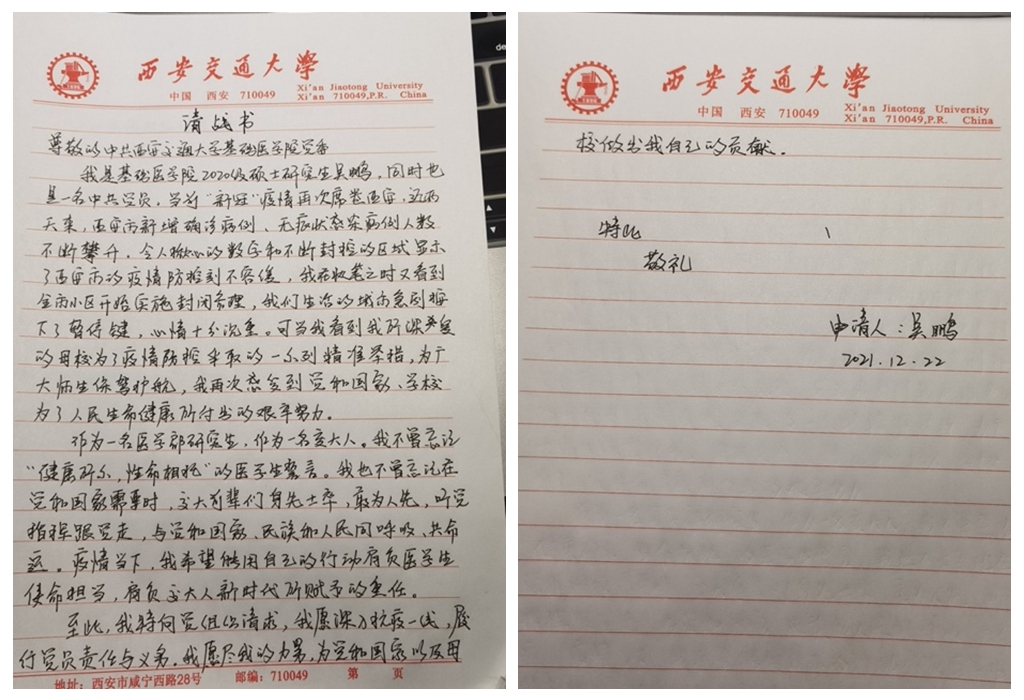 西安交通大学
中国 西安 710049
Xi'an Jiaotong University
Xi'an 710049,P.R. China
请战书
尊敬的中共西安交通大学基础医学院党委
我是基础医学院2020级硕士研究生吴鹏,同时也
是一名中共党员,当前“新冠”疫情再次席卷西安,近两
天来,西安市新增确诊病例、无症状感染病例人数
不断攀升,令人揪心的数字和不断封控的区域显示
了西安市的疫情防控刻不容缓,我在收卷之时又看到
全市小区开始实施封闭管理,我们生活的城市急刹按
下了暂停键,心情十分沉重。可当我看到我所深爱
的母校为了疫情防控采取的一系列精准举措,为广
大师生保驾护航,我再次感受到党和国家、学校
为了人民生命健康所付出的艰辛努力。
作为一名医学部研究生,作为一名交大人。我不曾忘记
“健康所系,性命相托”的医学生誓言。我也不曾忘记在
党和国家需要时,交大前辈们身先士卒,敢为人先,听党
指挥跟党走,与党和国家、民族和人民同呼吸、共命
运。疫情当下,我希望能用自己的行动肩负医学生
使命担当,肩负交大人新时代所赋予的重任。
至此,我特向党组织请求,我愿深入抗疫一线,履
行党员责任与义务,我愿尽我的力量,为党和国家以及母
地址:西安市咸宁西路28号 邮编:710049 第 页
西安交通大学
中国 西安 710049
Xi'an Jiaotong University
Xi'an 710049,P.R. China
校做出我自己的贡献.
特此
敬礼
申请人:吴鹏
2021.12.22